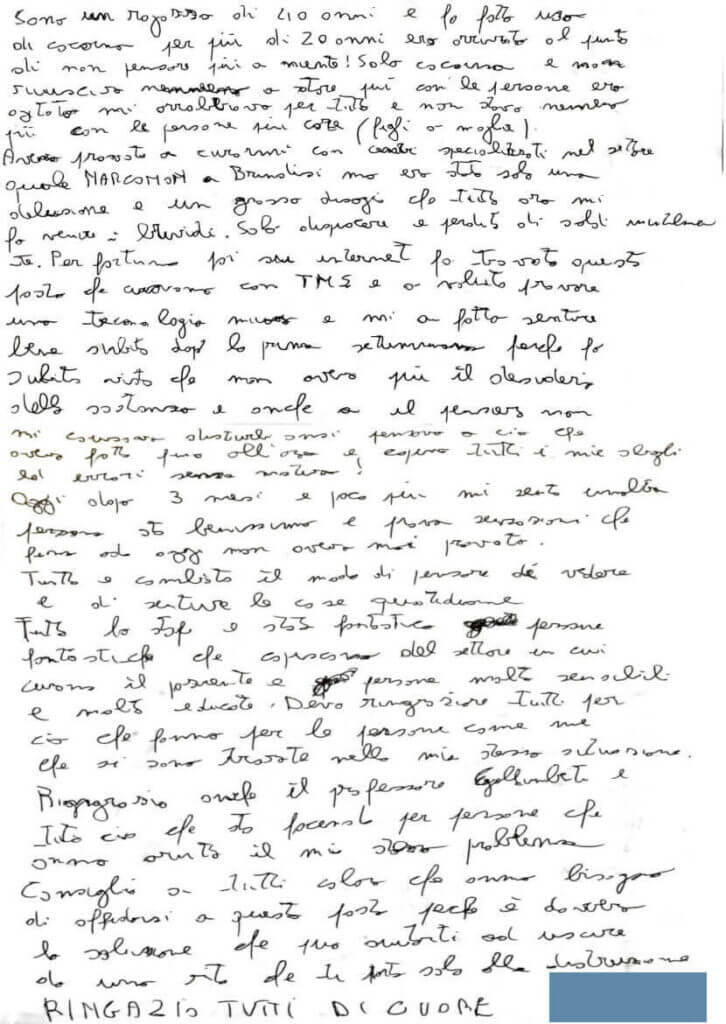 Sono un ragazzo di 40 anni e fo fatto uso
di cocaina per più di 20 anni ero arrivato al punto
di non pensare più a niente! Solo cocaina e non
riuscivo a stare più con le persone ero
mi arrabbiavo per tutto e non stavo nemeno
più con le persone più care (figli o moglie).
Avevo provato a curarmi con specializzati nel settore
quale NARCONON a Brindisi ma ero stato solo una
delusione e un grosso disagi che tutto ora mi
fa venire i brividi. Solo dispiacere e perdita di soldi
Per fortuna poi su internet fo trovato questo
posto che curavano con TMS e o voluto provare
una tecnologia nuova e mi a fatto sentire
bene subito dopo la prima settimana perche fo
subito visto che non avevo più il desiderio
della sostanza e anche a il pensiero non
mi disturbi anzi pensavo a cio che
avevo fatto fino all'ora e capivo tutti i mie sbagli
ed errori senza motivo!
Oggi dopo 3 mesi e poco più mi sento un'altra
persona sto benissimo e provo sensazioni che
fino ad oggi non avevo mai provato.
Tutto e cambiato il modo di pensare de vedere
e di sentire le cose quotidiane
Tutto lo staf e stato fantastico persone
fantastiche che capiscono del settore in cui
curano il paziente e persone molto sensibili
e molto educate. Devo ringraziare tutti per
cio che fanno per le persone come me
che si sono trovate nella mia stessa situazione.
anche il professore e
tutto cio che sta facendo per persone che
anno avuto il mio problema
Consiglio a tutti coloro che anno bisogno
di affidarsi a questo posto perche è davvero
la soluzione che puo aiutarti ad uscire
da una vita che ti porta solo alla distruzione
RINGAZIO TUTTI DI CUORE